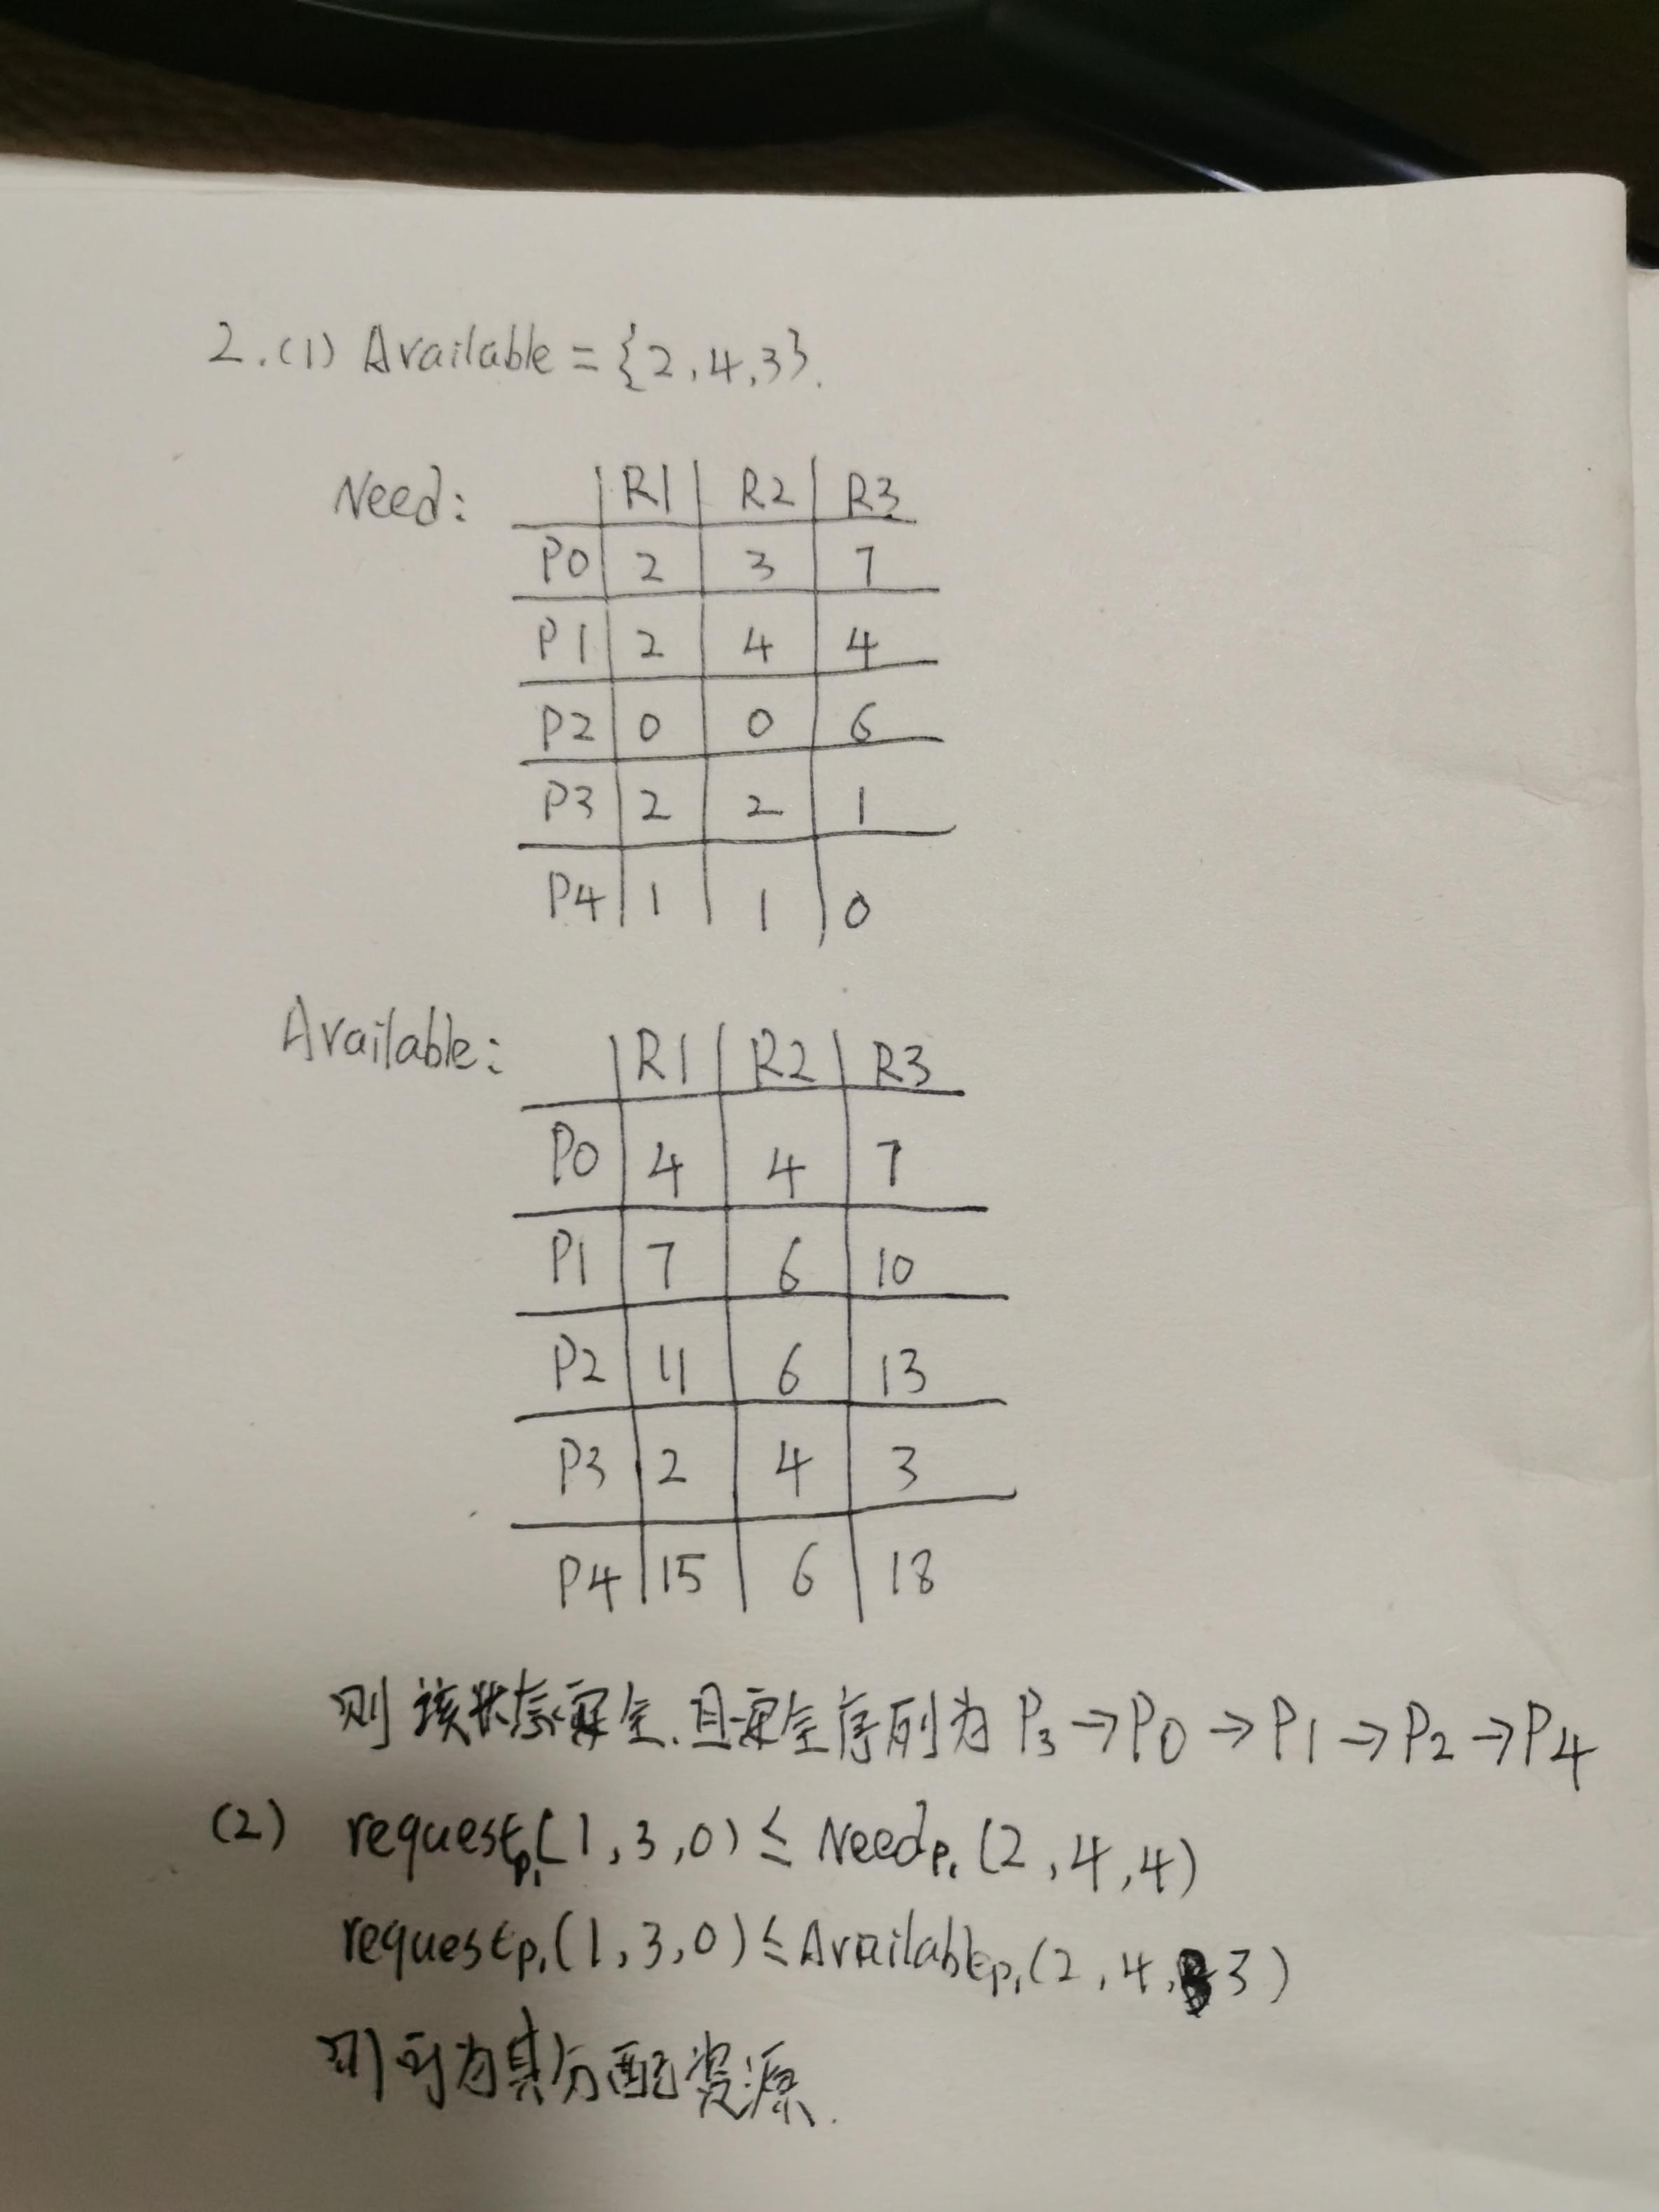 2.(1) Available = {2,4,3}.
Need:
R1 R2 R3
P0 2 3 7
P1 2 4 4
P2 0 0 6
P3 2 2 1
P4 1 1 0
Available:
R1 R2 R3
P0 4 4 7
P1 7 6 10
P2 11 6 13
P3 2 4 3
P4 15 6 18
则该状态安全.且安全序列为 P3→P0→P1→P2→P4
(2) requestP1(1,3,0) ≤ NeedP1(2,4,4)
requestP1(1,3,0) ≤ AvailableP1(2,4,3)
则可为其分配资源.